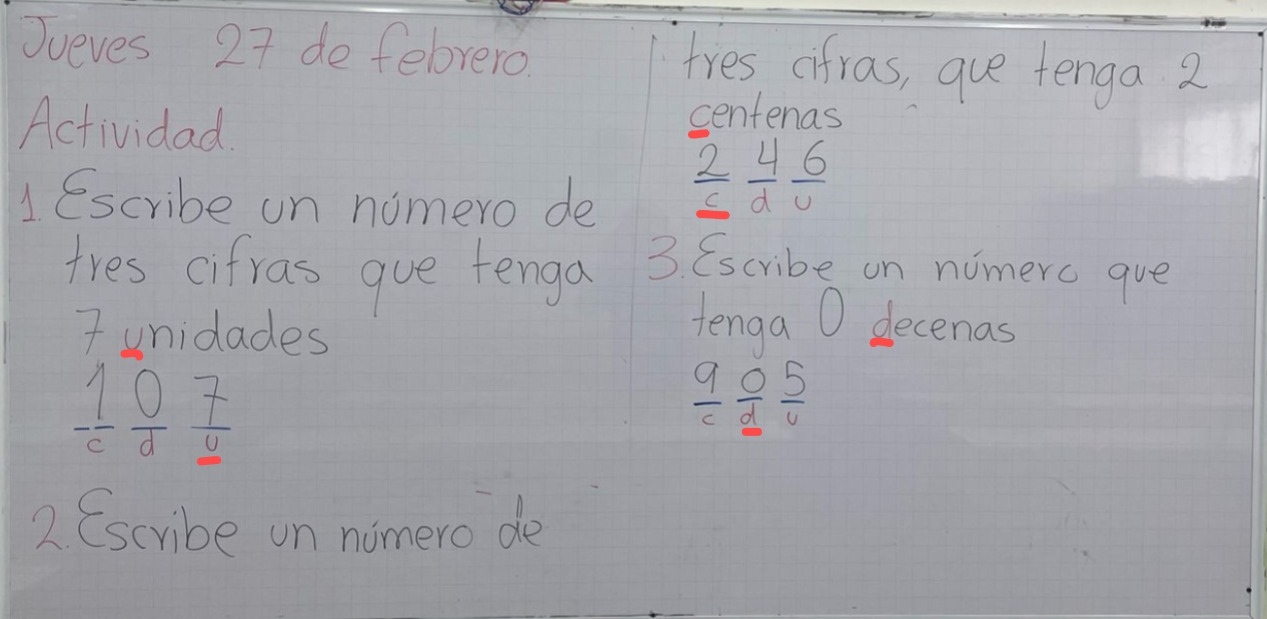 Jueves 27 de febrero.
Actividad.
1. Escribe un número de
tres cifras que tenga
7 unidades
1 0 7
c d u
2. Escribe un número de
tres cifras, que tenga 2
centenas
2 4 6
c d u
3. Escribe un número que
tenga 0 decenas
9 0 5
c d u